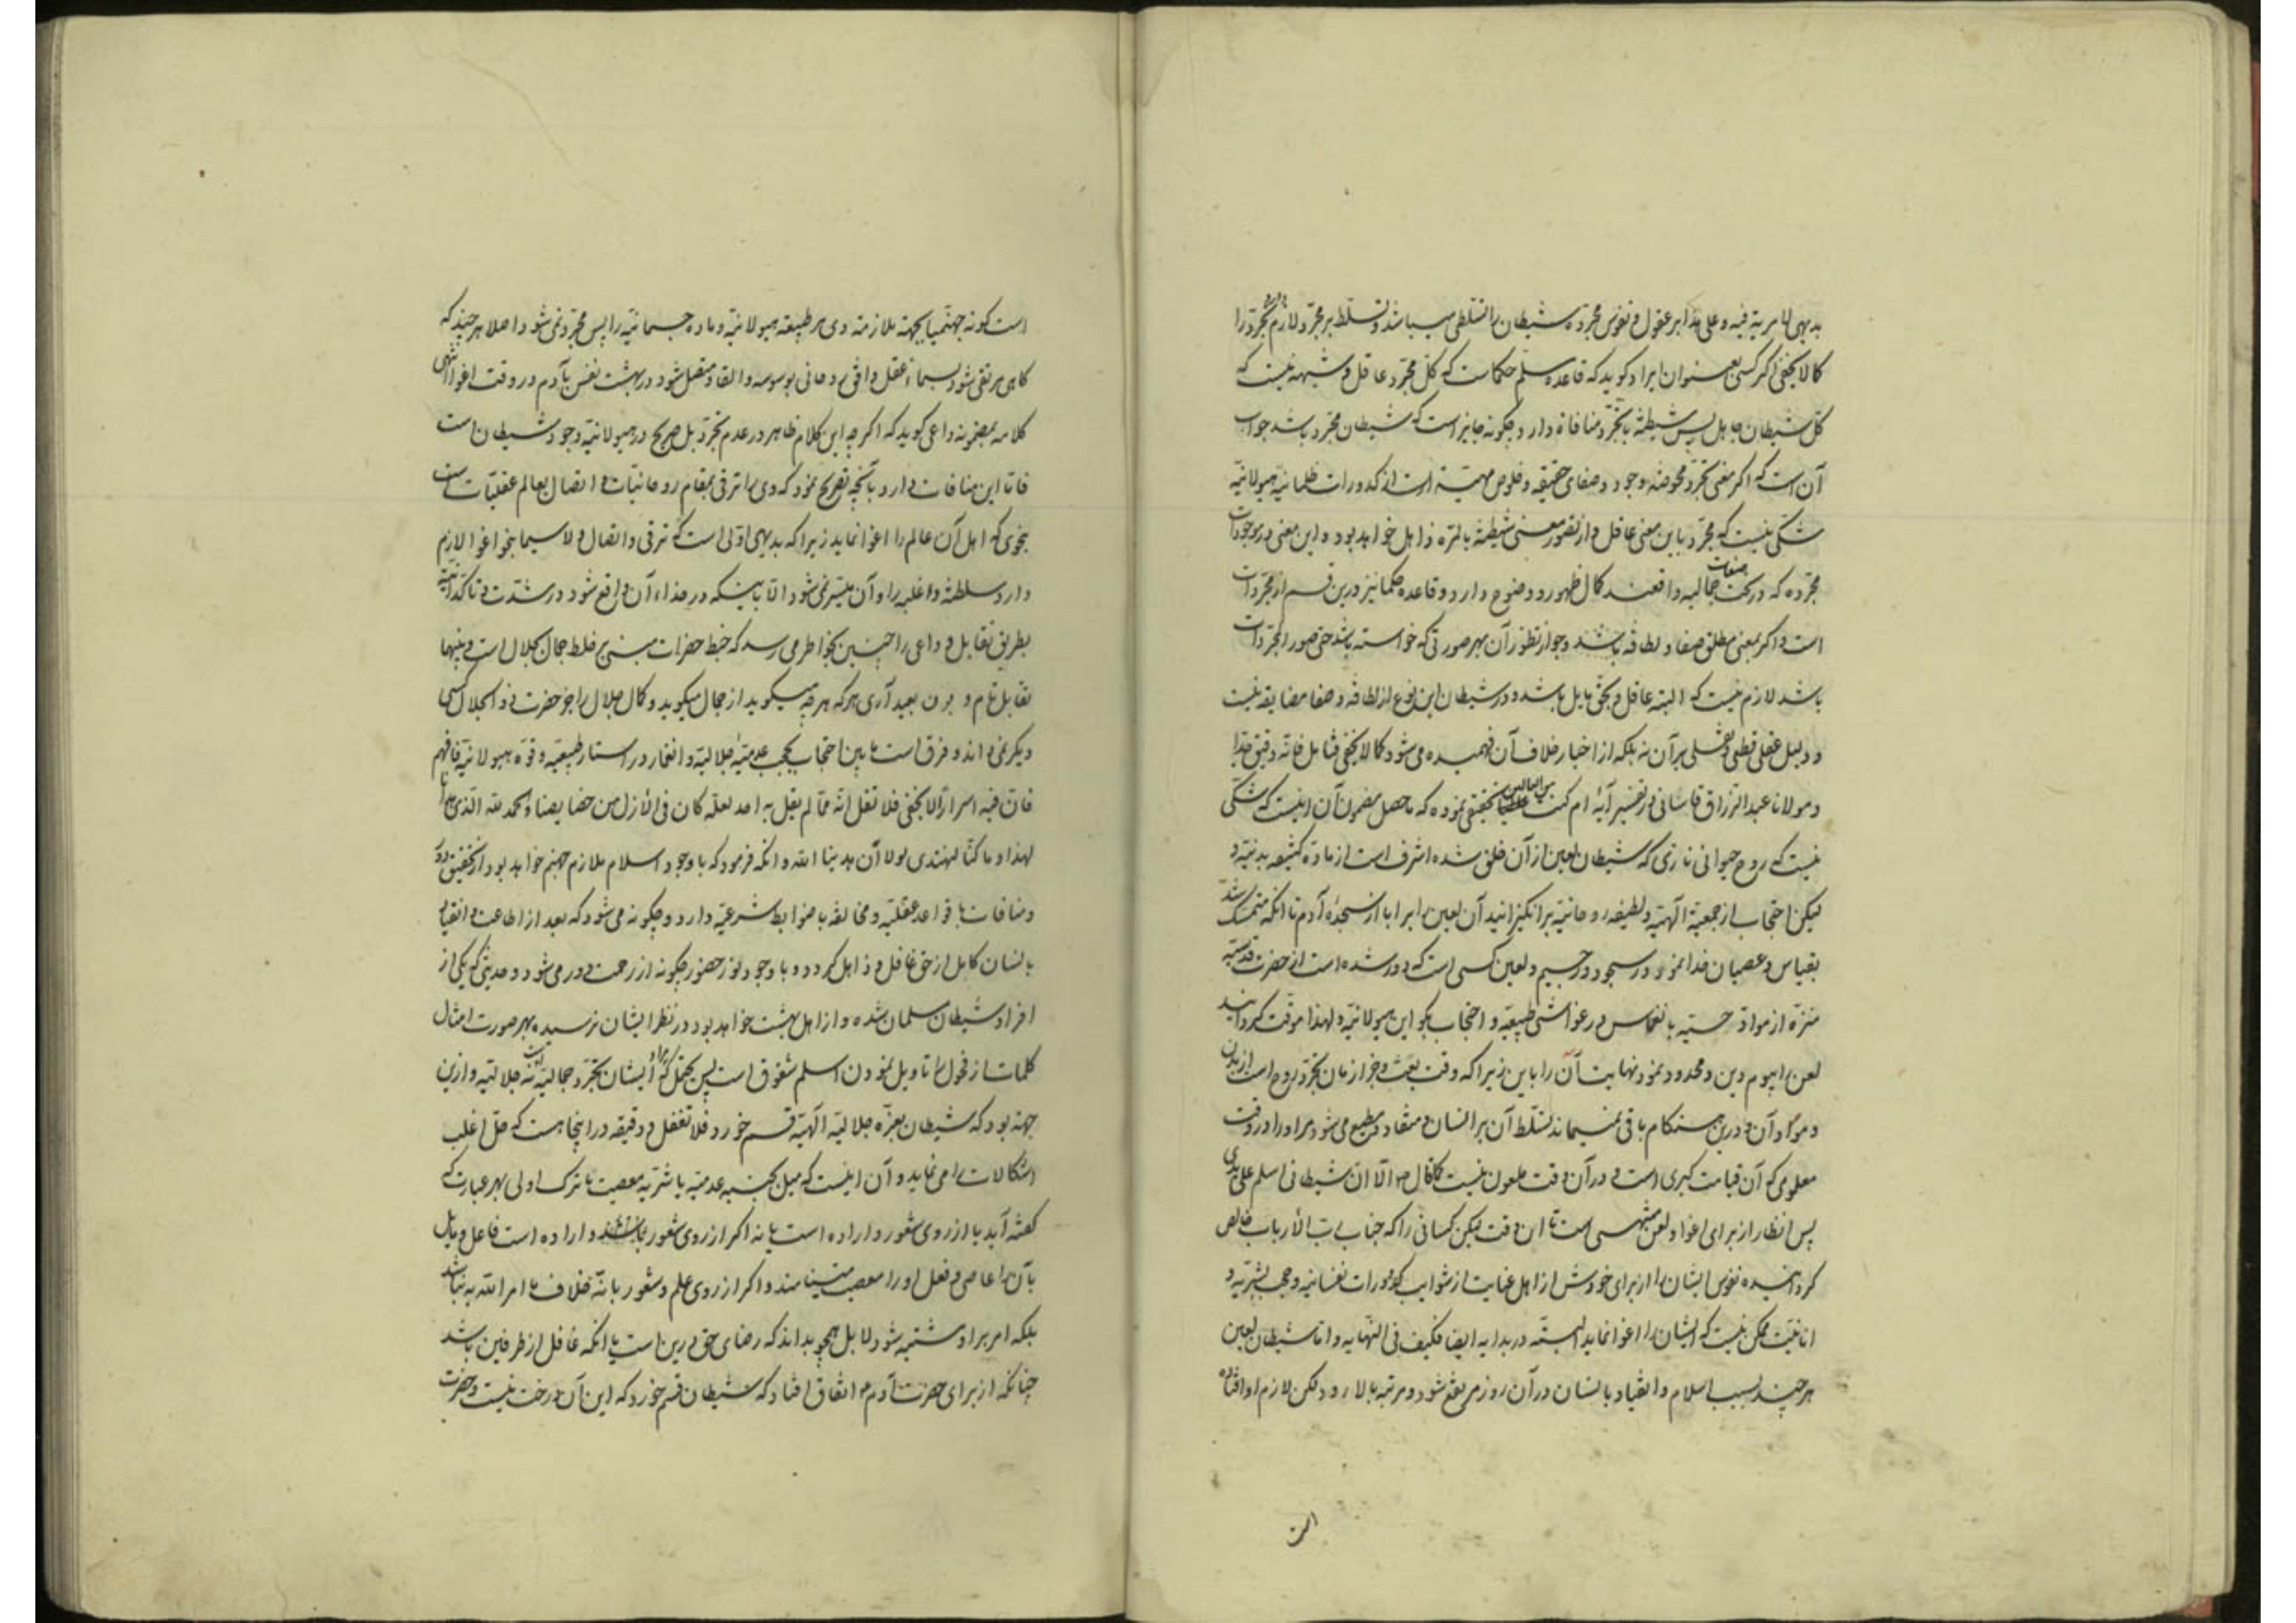 بدیهی لا مریة فیه و علی هذا بر عقول و نفوس مجرده شیطان را تسلطی میباشد و تسلط بر مجرد لازم تجرد را
کما لا یخفی اگر کسی بعنوان ایراد کوید که قاعده مسلم حکماست که کل مجرد عاقل و شبهه نیست که
کل شیطان جاهل پس شیطنة با تجرد منافاة دارد چکونه جایز است که شیطان مجرد باشد جواب
آن است که اکر معنی تجرد محوضه وجود و صفای حقیقه و خلوص مهیة است از کدورات ظلمانیه هیولانیه
شکی نیست که مجرد باین معنی عاقل و از تصور معنی شیطنة بالمره ذاهل خواهد بود و این معنی در موجودات
مجرده که در تحت صفات جمالیه واقعند کمال ظهور و وضوح دارد و قاعده حکما نیز درین قسم از مجردات
است و اکر بمعنی مطلق صفا و لطافه باشد و جواز تطور آن بهر صورتی که خواسته باشد حتی صور المجردات
باشد لازم نیست که البته عاقل و بحق مایل باشد و در شیطان این نوع از لطافه و صفا مضایقه نیست
و دلیل عقلی قطعی و نقلی بر آن نه بلکه از اخبار خلاف آن فهمیده می شود کما لا یخفی فتامل فانه دقیق جدا
و مولانا عبد الرزاق قاسانی در تفسیر آیۀ ام کنت من العالین تحقیقی نموده که ماحصل مضمون آن اینست که شکی
نیست که روح حیوانی ناری که شیطان لعین از آن خلق شده اشرف است از ماده کثیفه بدنیه و
لیکن احتجاب از جمعیة الهیه و لطیفه روحانیه برانکیزانید آن لعین را بر ابا از سجدۀ آدم تا انکه متمسک شد
بقیاس و عصیان خدا نمود در سجود و رجیم و لعین کسی است که دور شده است از حضرت قدسیه
منزه از مواد حسیه بانغماس در غواشی طبیعیه و احتجاب بکواین هیولانیه و لهذا موقت کردانید
لعن را بیوم دین و محدود نمود نهایت آن را باین زیرا که وقت بعث و جزا زمان تجرد روح است از بدن
و مواد آن و درین هنکام باقی نمیماند تسلط آن بر انسان و منقاد و مطیع می شود مر او را در وقت
معلومی که آن قیامت کبری است و در آن وقت ملعون نیست کما قال ص الا ان شیطانی اسلم علی یدی
پس انظار از برای اغوا و لعن منتهی است تا ان وقت لیکن کسانی را که جناب رب الأرباب خالص
کردانیده نفوس ایشان را از برای خودش از اهل عنایت از شوایب کدورات نفسانیه و حجب بشریه و
انانیت ممکن نیست که ایشان را اغوا نماید البته در بدایه ایضا فکیف فی النهایه و اما شیطان لعین
هر چند بسبب اسلام و انقیاد بانسان در آن روز مرتقع شود و مرتبه بالا رود لکن لازم او افتاده
است
است کونه جهنمیا بجهة ملازمته وی بر طبیعه هیولانیه و ماده جسمانیه را پس مجرد نمی شود اصلا هر چند که
کاهی مرتقی شود بسماء عقل و افق روحانی بوسوسه و القا و متصل شود در بهشت نفس بآدم در وقت اغوا انتهی
کلامه بمضمونه داعی کوید که اکر چه این کلام ظاهر در عدم تجرد بل صریح در هیولانیه وجود شیطان است
فاما این منافات دارد بآنچه تصریح نمود که وی را ترقی بمقام روحانیات و اتصال بعالم عقلیات است
بنحوی که اهل آن عالم را اغوا نماید زیرا که بدیهی اولی است که ترقی و اتصال و لا سیما بنحو اغوا لازم
دارد سلطنة و اغلبیه را و آن میسر نمی شود الا باینکه در حذاء آن واقع شود در شدت و تاکد انیة
بطریق تقابل و داعی را چنین بخواطر می رسد که خبط حضرات مبنی بر خلط جمال بجلال است و بینهما
تقابل تام و بون بعید آری هر که هر چه میکوید از جمال میکوید و کمال جلال را جز حضرت ذو الجلال کسی
دیکر نمی داند و فرق است مابین احتجاب بحجب عدمیۀ جلالیة و انغمار در استار طبیعیه و قوة هیولانیة فافهم
فان فیه اسرارا لا یخفی فلا تغفل انه مما لم یقل به احد لعله کان فی الأزل من خصایصنا و الحمد لله الذی هدانا
لهذا و ما کنا لنهتدی لولا أن هدینا الله و انکه فرمود که با وجود اسلام ملازم جهنم خواهد بود از تحقیق دور
و منافات با قواعد عقلیه و مخالفه با ضوابط شرعیه دارد و چکونه می شود که بعد از اطاعت و انقیاد
بانسان کامل از حق غافل و ذاهل کردد و با وجود نور حضور چکونه از رحمت دور می شود و حدیثی که یکی از
افراد شیطان مسلمان شده و از اهل بهشت خواهد بود در نظر ایشان نرسیده بهر صورت امثال
کلمات از فحول را تاویل نمودن اسلم شقوق است پس یحتمل که مراد ایشان تجرد جمالیه است نه جلالیه و ازین
جهة بود که شیطان بعزة جلالیة الهیه قسم خورد فلا تغفل و دقیقه در اینجا هست که حل اغلب
اشکالات را می نماید و آن اینست که میل بجنبه عدمیه یا شریه معصیت یا ترک اولی بهر عبارت که
کفته آید یا از روی شعور و اراده است یا نه اکر از روی شعور و اراده است فاعل و مایل
بآن را عاصی و فعل او را معصیت مینامند و اکر از روی علم و شعور بانه خلاف ما امر الله به نباشد
بلکه امر بر او مشتبه شود لا بل همچو بداند که رضای حق درین است یا انکه غافل از طرفین باشد
چنانکه از برای حضرت آدم ع اتفاق افتاد که شیطان قسم خورد که این آن درخت نیست و حضرت